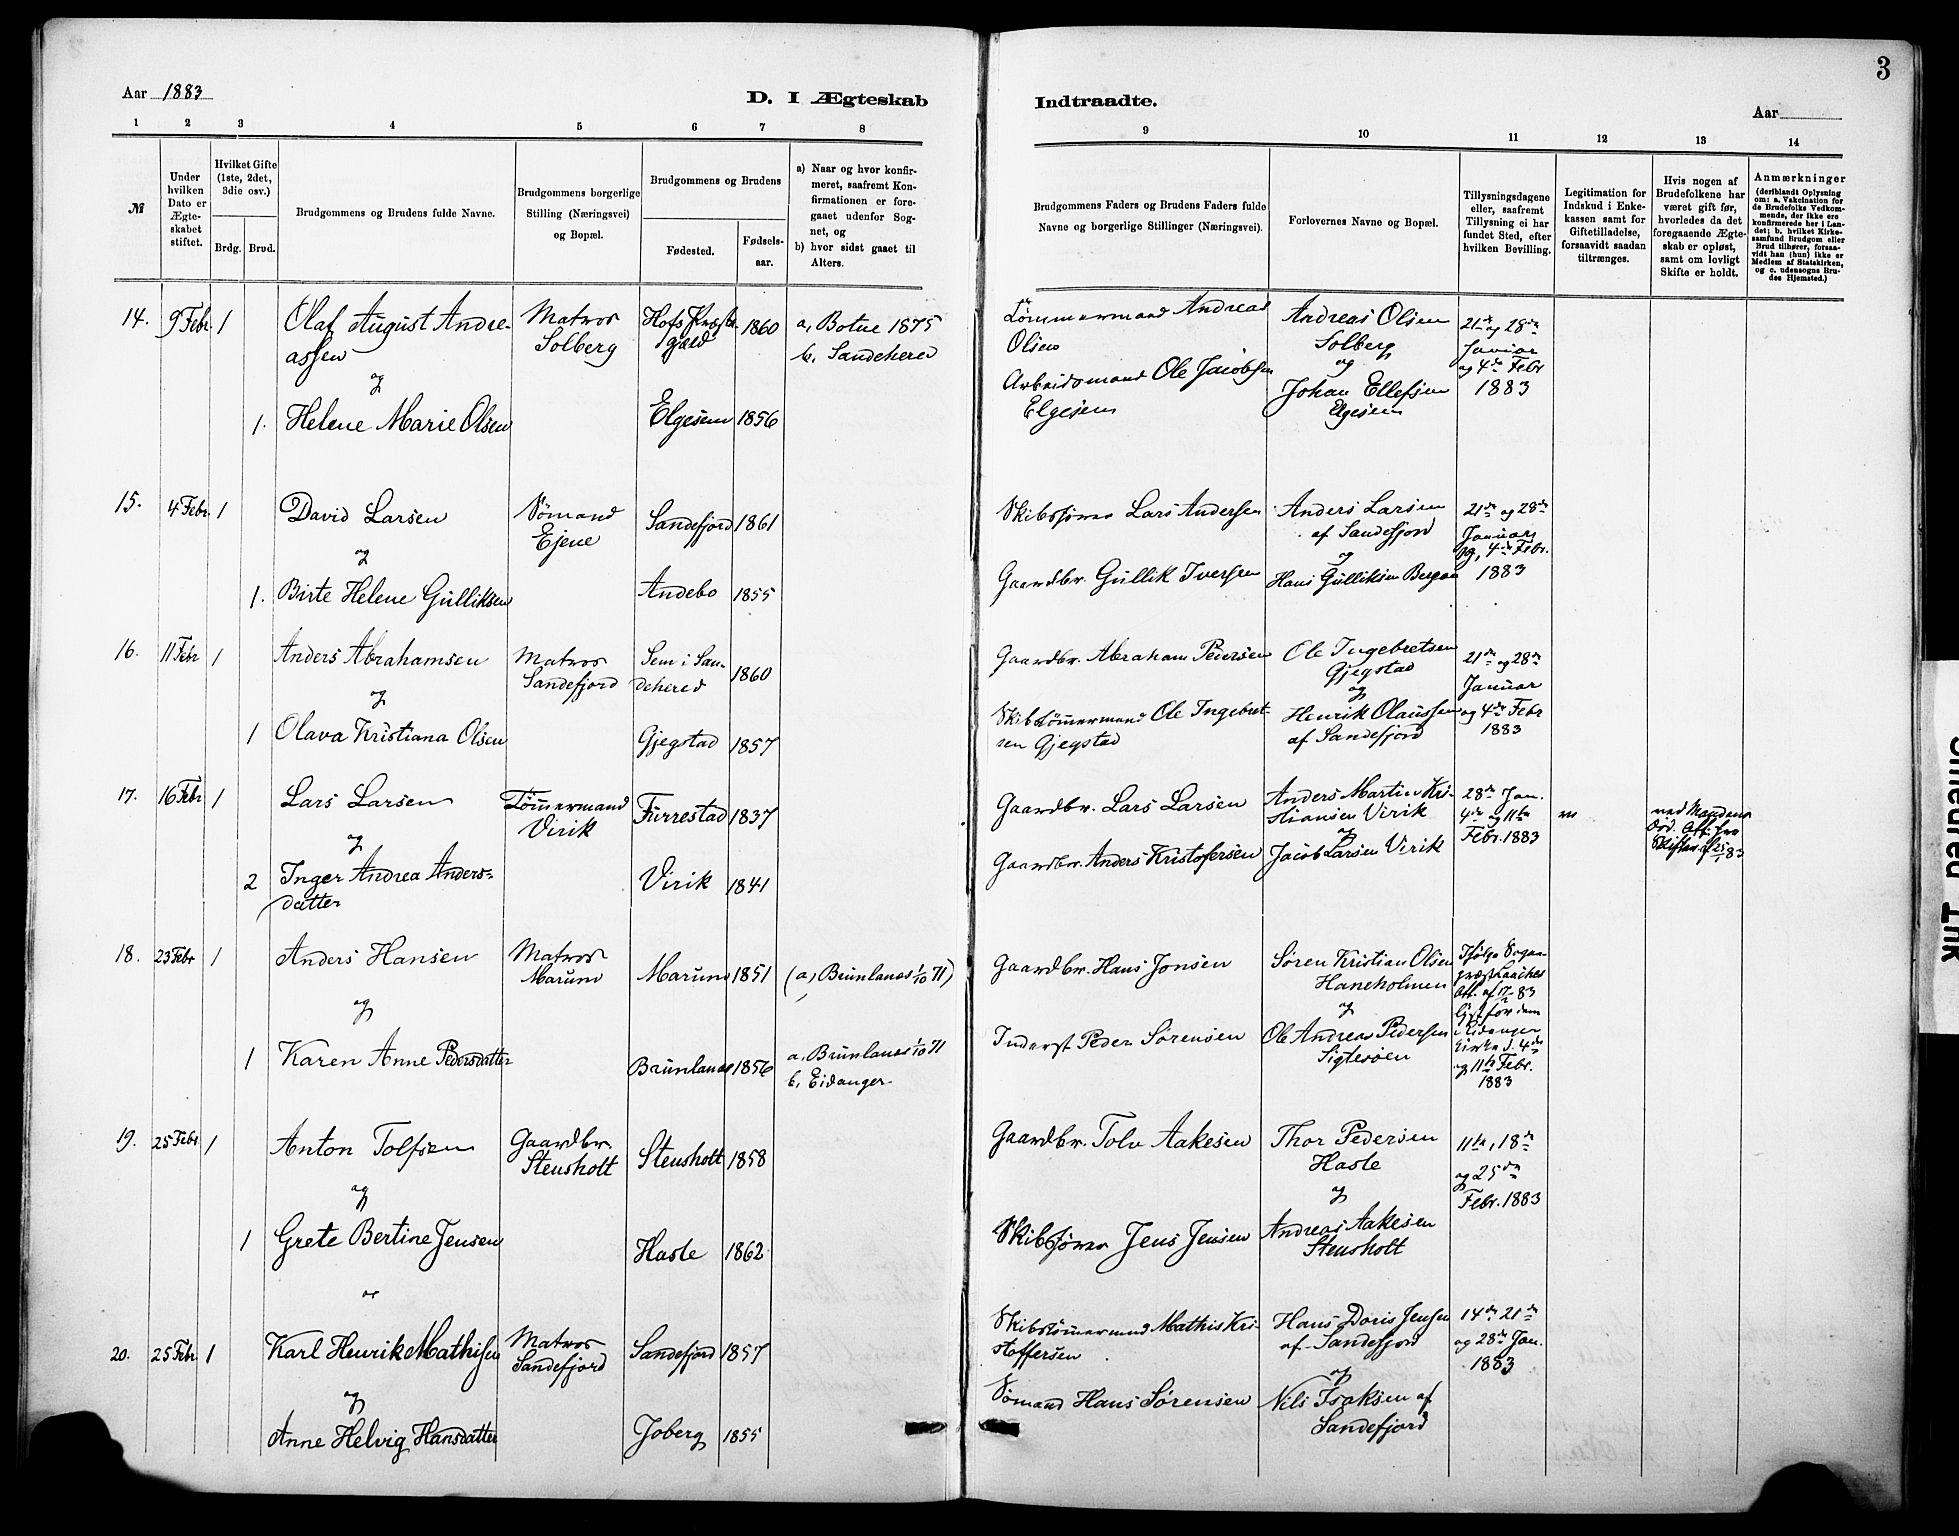 3
Aar 1883
D. I Ægteskab
Indtraadte.
Aar
1 2 3 4 5 6 7 8
9 10 11 12 13 14
№
Under
hvilken
Dato er
Ægte-
skabet
stiftet.
Hvilket Gifte
(1ste, 2det,
3die osv.)
Brdg. Brud.
Brudgommens og Brudens fulde Navne.
Brudgommens borgerlige
Stilling (Næringsvei)
og Bopæl.
Brudgommens og Brudens
Fødested.
Fødsels-
aar.
a) Naar og hvor konfir-
meret, saafremt Kon-
firmationen er fore-
gaaet udenfor Sog-
net, og
b) hvor sidst gaaet til
Alters.
Brudgommens Faders og Brudens Faders fulde
Navne og borgerlige Stillinger (Næringsvei).
Forlovernes Navne og Bopæl.
Tillysningsdagene
eller, saafremt
Tillysning ei har
fundet Sted, efter
hvilken Bevilling.
Legitimation for
Indskud i Enke-
kassen samt for
Giftetilladelse,
forsaavidt saadan
tiltrænges.
Hvis nogen af
Brudefolkene har
været gift før,
hvorledes da det
foregaaende Ægte-
skab er opløst,
samt om lovligt
Skifte er holdt.
Anmærkninger
(deriblandt Oplysning
om: a. Vakcination for
de Brudefolks Vedkom-
mende, der ikke ere
konfirmerede her i Lan-
det; b. hvilket Kirke-
samfund Brudgom eller
Brud tilhører, forsaa-
vidt han (hun) ikke er
Medlem af Statskirken,
og c. udensogns Bru-
des Hjemsted.)
14. 9 Febr. 1
Olaf August Andre-
assen
og
1. Helene Marie Olsen
Matros
Solberg
Hofs Præste-
gjeld
1860
Elgesem 1856
a, Botne 1875
b, Sandehered
Tømmermand Andreas
Olsen
Arbeidsmand Ole Jacobsen
Elgesem
Andreas Olsen
Solberg
og
Johan Ellefsen
Elgesem
21de og 28de
Januar
og 4de Febr
1883
15. 4 Febr. 1
David Larsen
og
1. Birte Helene Gulliksen
Sømand
Ejene
Sandefjord 1861
Andebo 1855
Skibsfører Lars Andersen
Gaardbr. Gullik Iversen
Anders Larsen
af Sandefjord
og
Hans Gulliksen Bergan
21de og 28de
Januar
og 4de Febr.
1883
16. 11 Febr 1
Anders Abrahamsen
og
1 Olava Kristiana Olsen
Matros
Sandefjord
Sem i San-
dehered
1860
Gjegstad 1857
Gaardbr. Abraham Pedersen
Skibstømmermand Ole Ingebret-
sen Gjegstad
Ole Ingebretsen
Gjegstad
og
Henrik Olaussen
af Sandefjord
21de og 28de
Januar
og 4de Febr
1883
17. 16 Febr 1
Lars Larsen
og
2 Inger Andrea Anders-
datter
Tømmermand
Virik
Furrestad 1837
Virik 1841
Gaardbr. Lars Larsen
Gaardbr. Anders Kristofersen
Anders Martin Kri-
stiansen Virik
og
Jacob Larsen Virik
28de Jan.
4de og 11te
Febr. 1883
ved Mandens
Død. Att. fra
Skifter. af 25/1 83
18. 23 Febr 1
Anders Hansen
og
1 Karen Anne Pedersdatter
Matros
Marum
Marum 1851
Brunlanæs 1856
(a, Brunlanæs 1/10 71)
a, Brunlanæs 1/10 71
b, Eidanger
Gaardbr. Hans Jonsen
Inderst Peder Sørensen
Søren Kristian Olsen
Haneholmen
og
Ole Andreas Pedersen
Sigtesøen
Ifølge Sogne-
præst
Att. af 17/2 83
lyst for dem
i Eidanger
Kirke d. 4de
og 11te Febr.
1883
19. 25 Febr 1
Anton Tolfsen
og
1 Grete Bertine Jensen
Gaardbr.
Stensholt
Stensholt 1858
Hasle 1862
Gaardbr. Tolv Aakesen
Skibsfører Jens Jensen
Thor Pedersen
Hasle
og
Andreas Aakesen
Stensholt
11te, 18de
og 25de
Febr. 1883
20. 25 Febr. 1
Karl Henrik Mathisen
og
Anne Helvig Hansdatter
Matros
Sandefjord
Sandefjord 1857
Joberg 1855
Skibstømmermand Mathis Kri-
stoffersen
Sømand Hans Sørensen
Hans Doris Jensen
af Sandefjord
og
Nils Isaksen af
Sandefjord
14de 21de
og 28de Jan.
1883